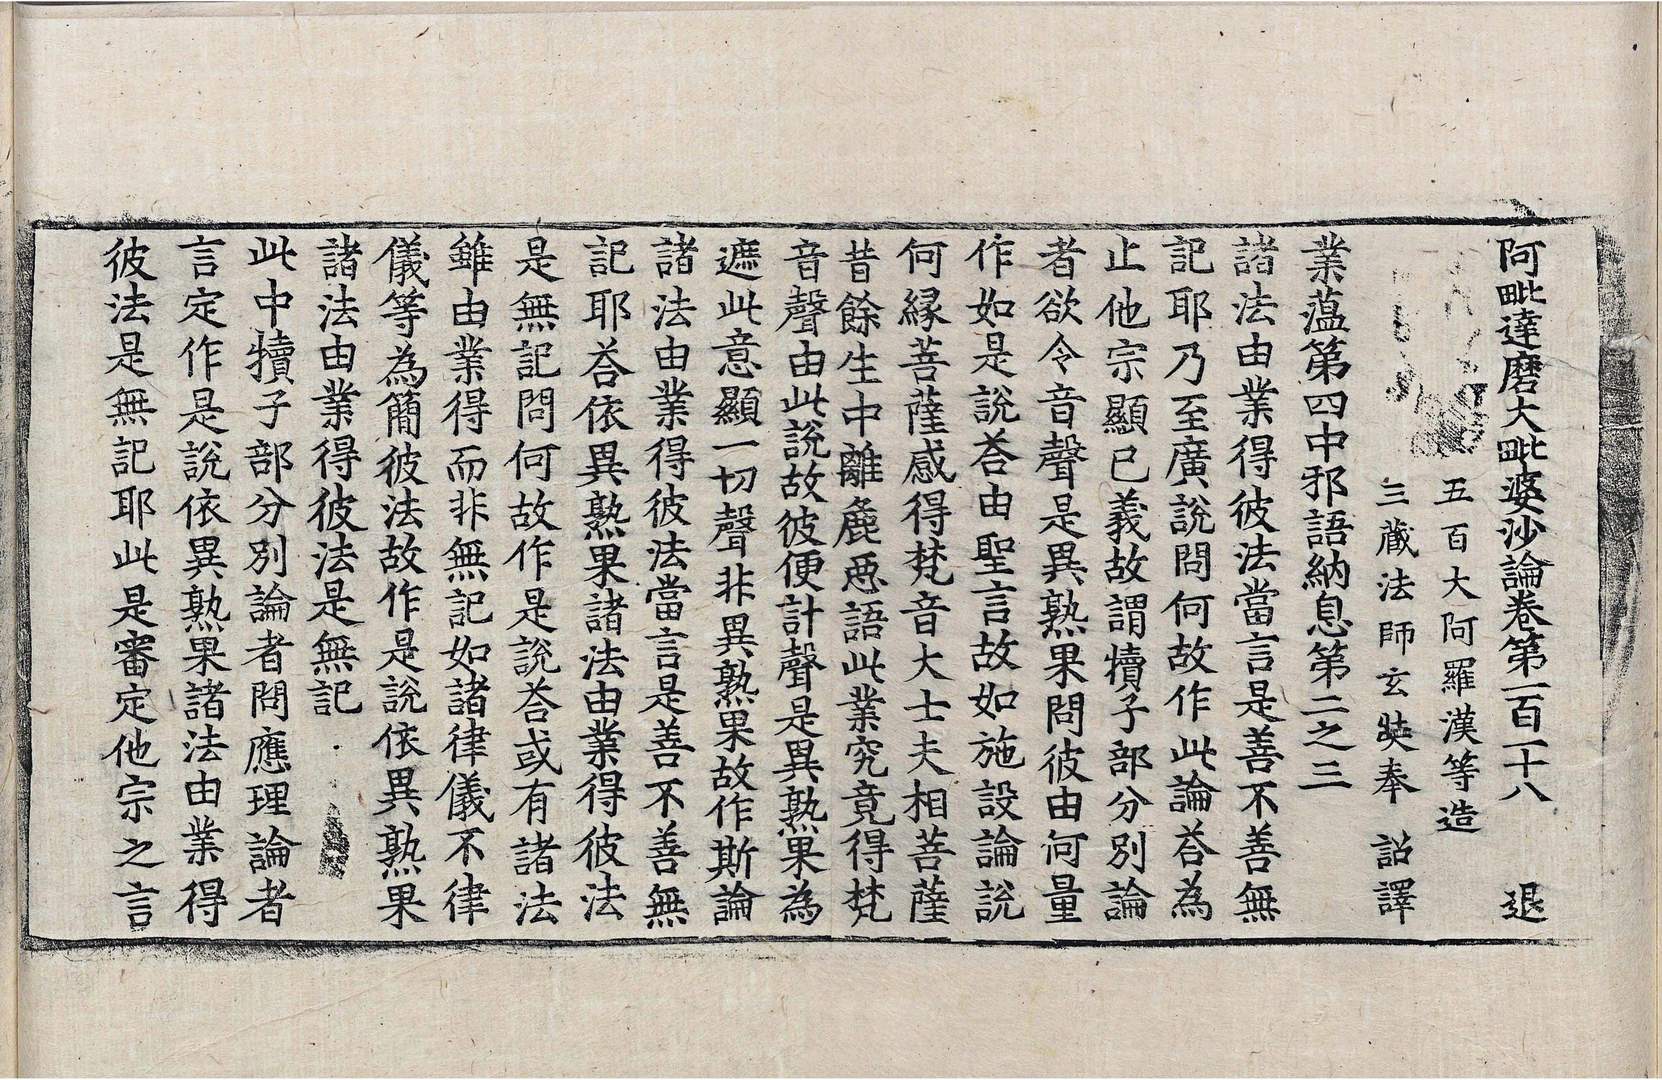 阿毗達磨大毗婆沙論卷第一百一十八　退
五百大阿羅漢等造
三藏法師玄奘奉　詔譯
業蕰第四中邪語納息第二之三
諸法由業得彼法當言是善不善無
記耶乃至廣說問何故作此論荅為
止他宗顯已義故謂犢子部分別論
者欲令音聲是異熟果問彼由何量
作如是說荅由聖言故如施設論說
何縁菩薩感得梵音大士夫相菩薩
昔餘生中離麁恶語此業究竟得梵
音聲由此說故彼便計聲是異熟果為
遮此意顯一切聲非異熟果故作斯論
諸法由業得彼法當言是善不善無
記耶荅依異熟果諸法由業得彼法
是無記問何故作是說荅或有諸法
雖由業得而非無記如諸律儀不律
儀等為簡彼法故作是說依異熟果
諸法由業得彼法是無記
此中犢子部分別論者問應理論者
言定作是說依異熟果諸法由業得
彼法是無記耶此是審定他宗之言